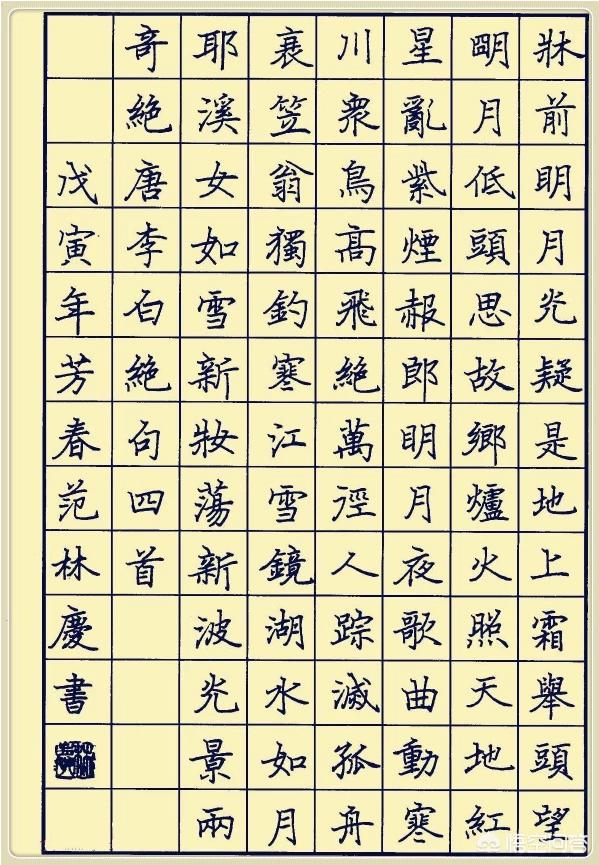 牀前明月光疑是地上霜舉頭望
朙月低頭思故鄉爐火照天地紅
星亂紫煙赧郎明月夜歌曲動寒
川衆鳥高飛絶萬徑人踪滅孤舟
衰笠翁獨釣寒江雪鏡湖水如月
耶溪女如雪新妝蕩新波光景兩
奇絶唐李白絶句四首
戊寅年芳春范林慶書
悟空问答